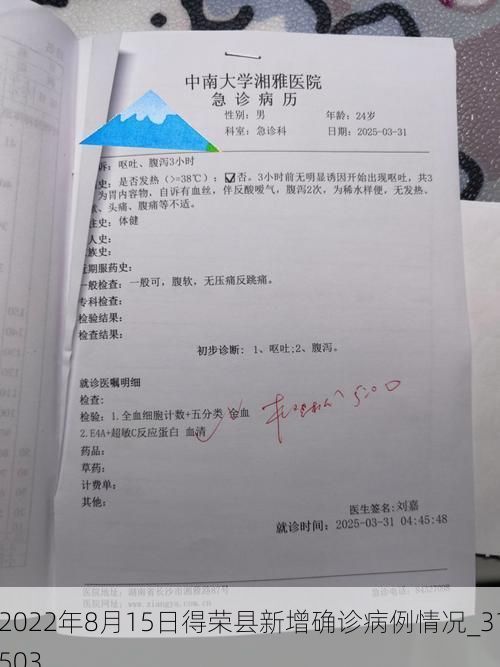 中南大学湘雅医院
急 诊 病 历
性别：男 年龄：24岁
科室：急诊科 日期：2025-03-31
诉：呕吐、腹泻3小时
史：是否发热（>=38℃）：☑否。3小时前无明显诱因开始出现呕吐，共3
为胃内容物，自诉有血丝，伴反酸嗳气，腹泻2次，为稀水样便，无发热、
、头痛、腹痛等不适。
往史：体健
人史：
族史：
近期服药史：
一般检查：一般可，腹软，无压痛反跳痛。
专科检查：
检验结果：
检查结果：
初步诊断： 1、呕吐;2、腹泻。
就诊医嘱明细
检查：
检验：1.全血细胞计数+五分类 全血
2.E4A+超敏C反应蛋白 血清
药品：
草药：
计费单：
其他：
医生签名:刘嘉
就诊时间：2025-03-31 04:45:48
医院地址：湖南省长沙市湘雅路87号
医院网址：www.xiangya.com.cn
2022年8月15日得荣县新增确诊病例情况_31
503